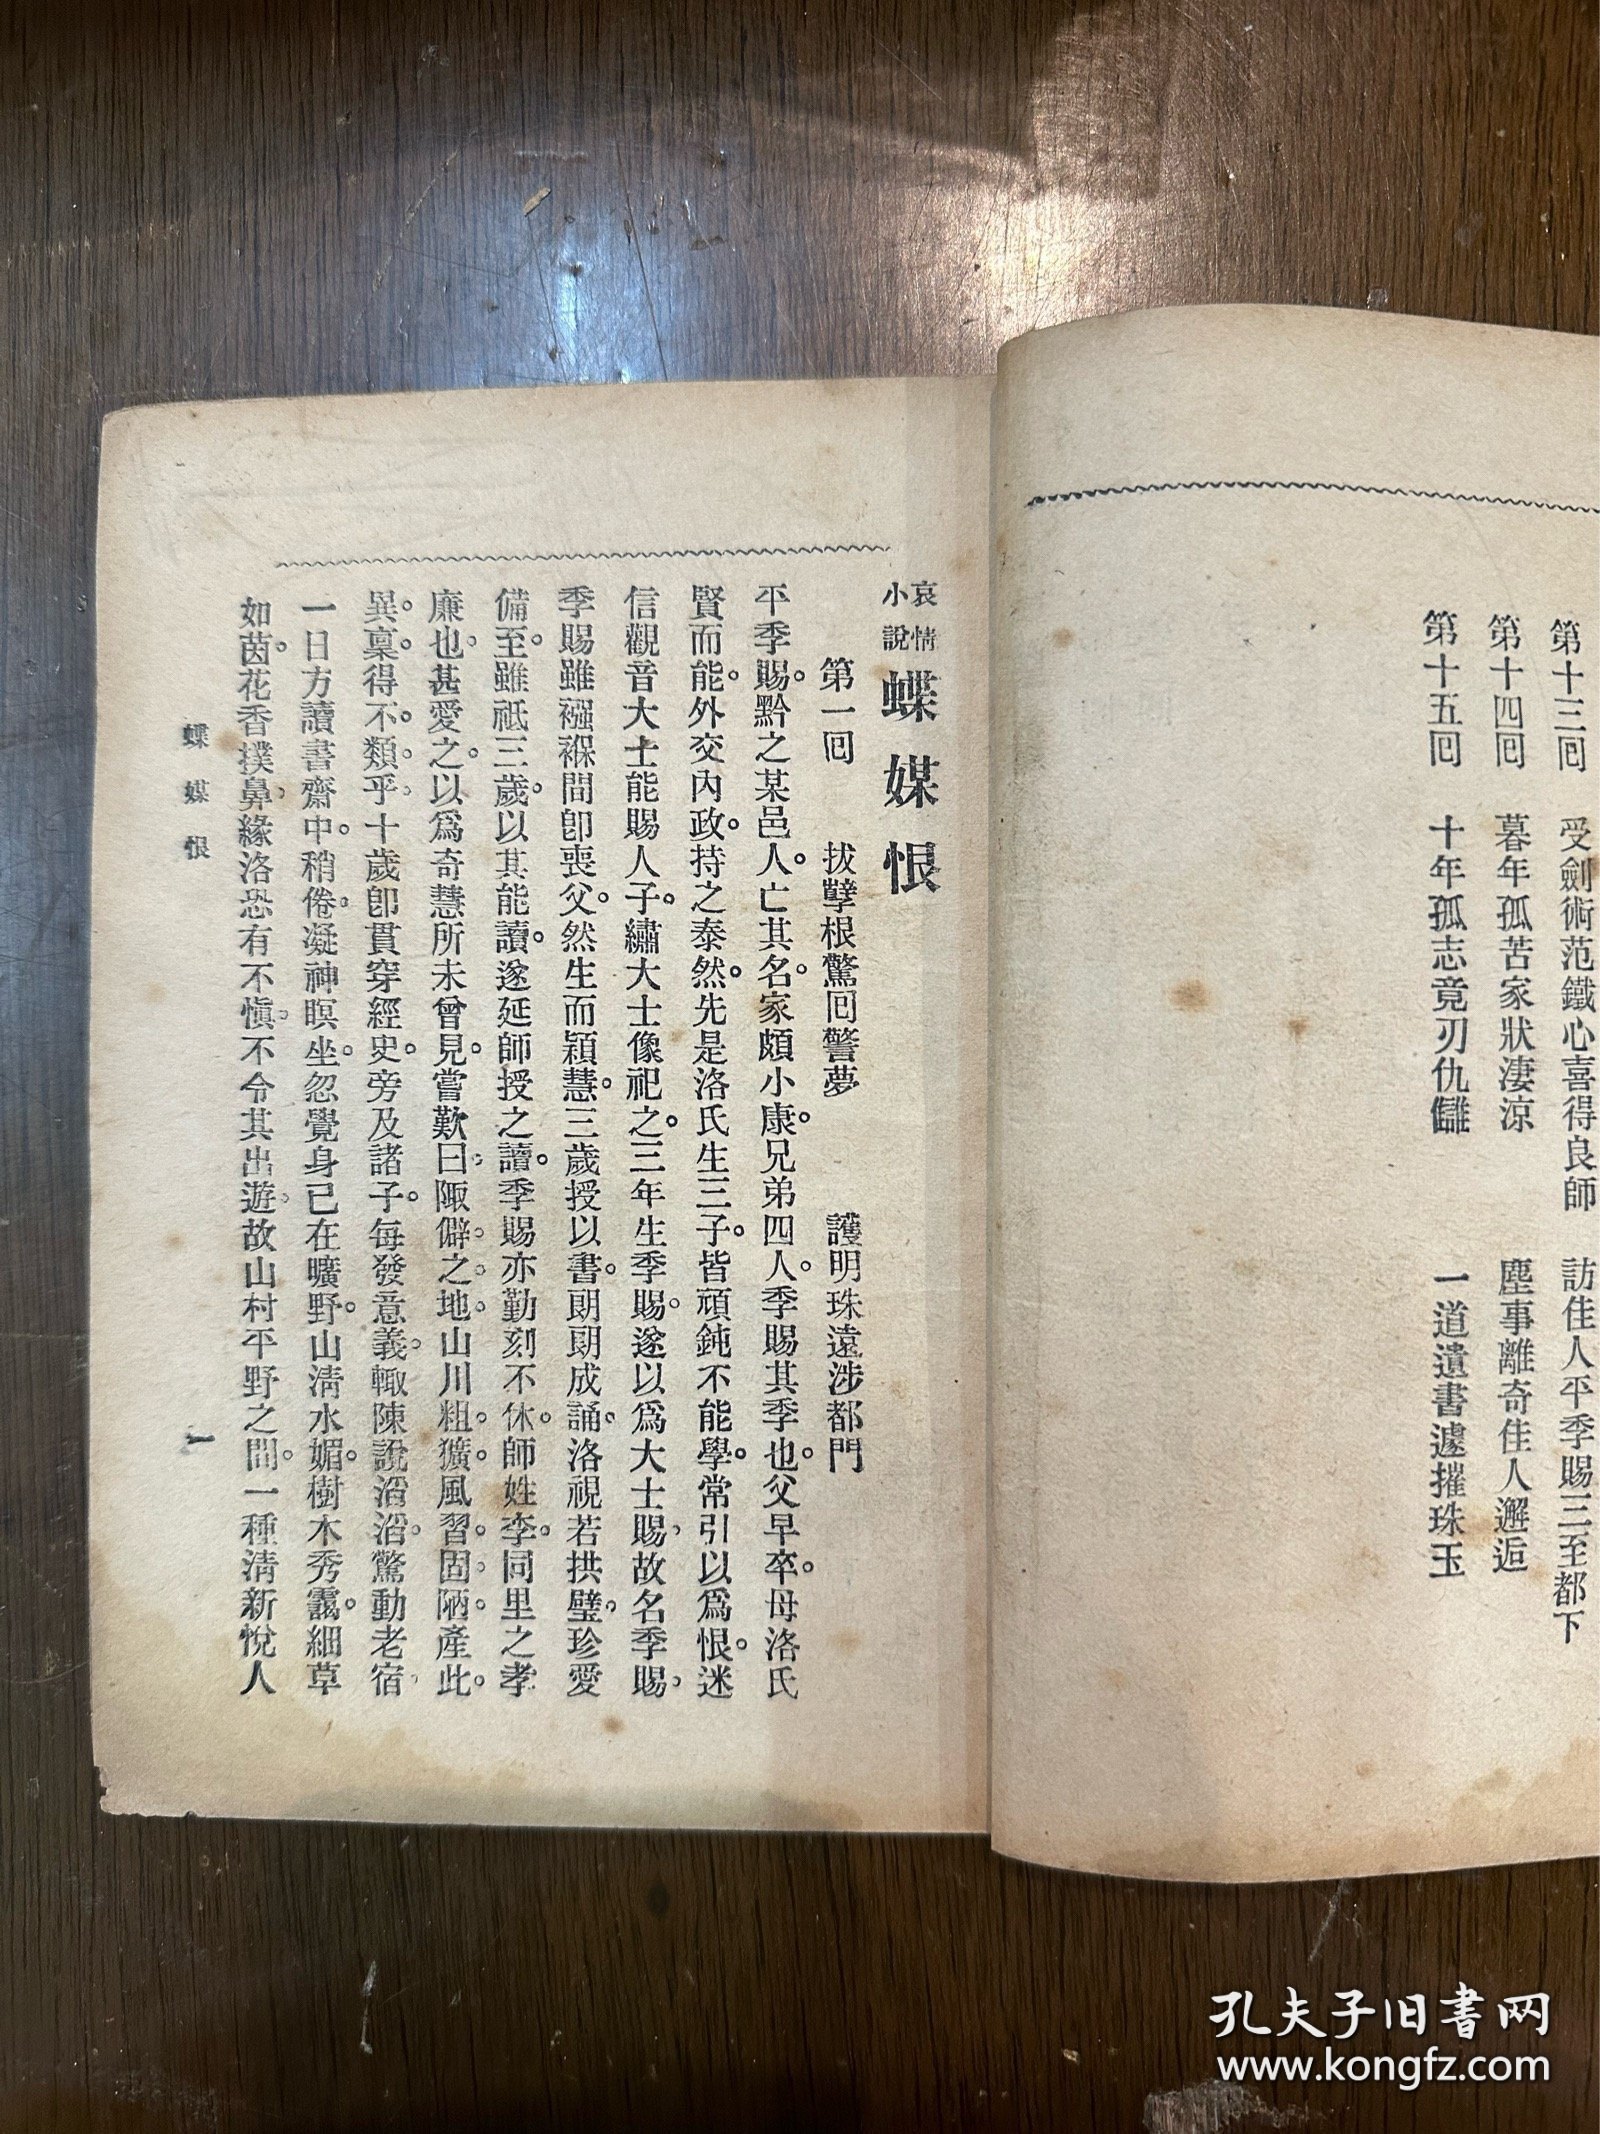 第十三回　受劍術范鐵心喜得良師　訪佳人平季賜三至都下
第十四回　暮年孤苦家狀淒涼　塵事離奇佳人邂逅
第十五回　十年孤志竟刃仇讎　一道遺書遽摧珠玉
哀情小說　蝶媒恨
第一回　拔孽根驚回警夢　護明珠遠涉都門
平季賜。黔之某邑人。亡其名。家頗小康。兄弟四人。季賜其季也。父早卒。母洛氏
賢而能。外交內政。持之泰然。先是洛氏生三子。皆頑鈍不能學。常引以爲恨。迷
信觀音大士能賜人子。繡大士像祀之。三年生季賜。遂以爲大士賜。故名季賜。
季賜雖襁褓間卽喪父。然生而穎慧。三歲授以書。朗朗成誦。洛視若拱璧。珍愛
備至。雖祇三歲。以其能讀。遂延師授之讀。季賜亦勤刻不休。師姓李。同里之孝
廉也。甚愛之。以爲奇慧所未曾見。嘗歎曰。陬僻之地。山川粗獷。風習固陋。產此。
異稟。得不類乎。十歲卽貫穿經史。旁及諸子。每發意義。輙陳說滔滔。驚動老宿。
一日方讀書齋中。稍倦。凝神瞑坐。忽覺身已在曠野。山淸水媚。樹木秀靄。細草
如茵。花香撲鼻。緣洛恐有不愼。不令其出遊。故山村平野之間。一種淸新悅人
蝶媒恨
一
孔夫子旧书网
www.kongfz.com